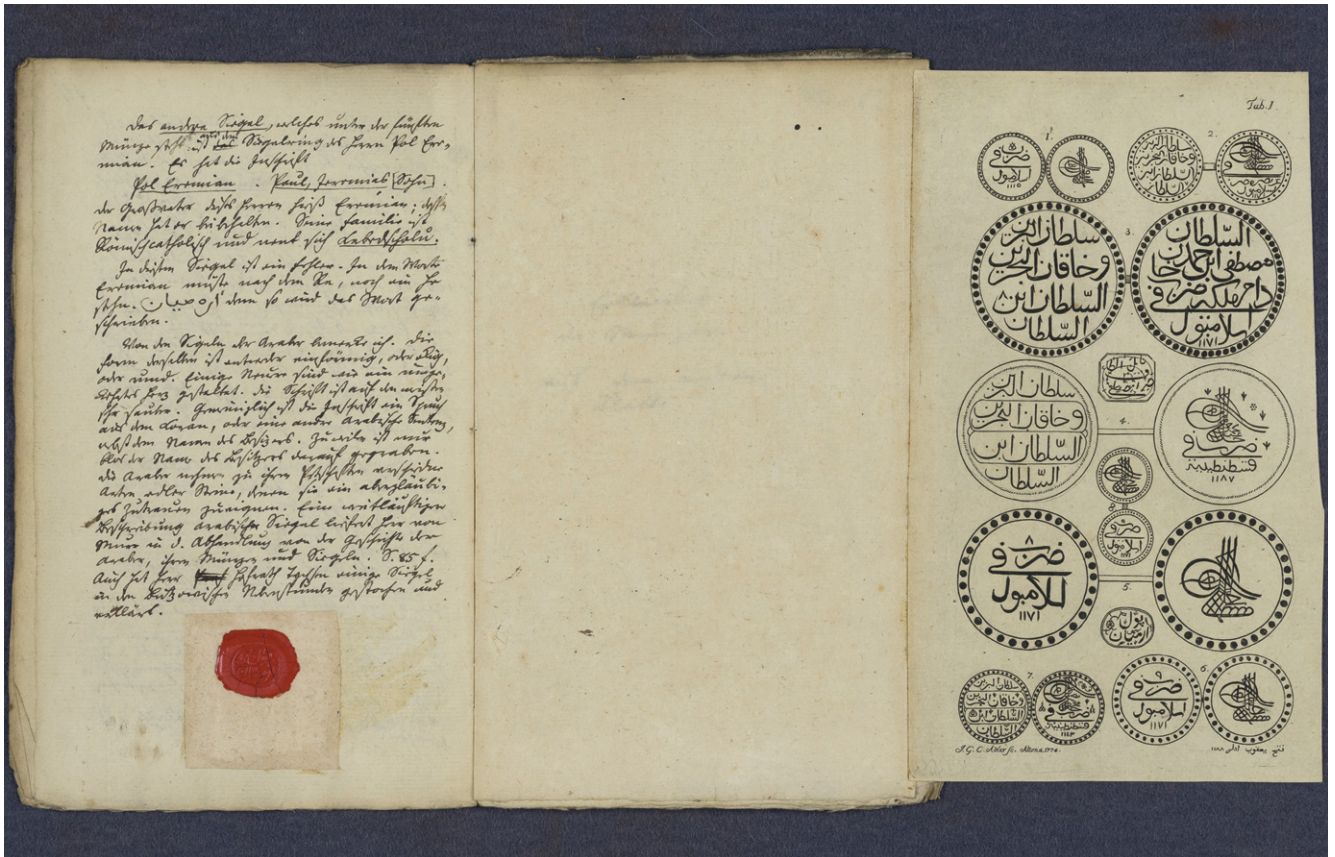 Das andere Siegel, welches unter der fünften
Münze steht ist auf dem Siegelring des Herrn Pol Ere-
mian. Es hat die Inschrift
Pol Eremian. Paul, Jeremias [Sohn].
der Großvater dieses Herren heißt Eremian;
Namen hat er beibehalten. Seine Familie ist
Römischcatholisch und nent sich
In diesem Siegel ist ein Fehler. In dem Worte
Eremian müste nach dem Re, noch ein Je
stehn. denn so wird das Wort ge-
schrieben.
Von den Sigeln der Araber bemerke ich. Die
Form derselben ist entweder einförmig, oder
oder rund. Einige Neuere sind wie ein umge-
kehrtes Herz gestaltet. die Schrift ist auf den meisten
sehr sauber. Gemeiniglich ist die Inschrift ein Spruch
aus dem Coran, oder eine andre Arabische Sentenz,
nebst dem Namen des Besizers. Zuweilen ist nur
blos der Name des Besitzers darauf gegraben.
die Araber nehmen zu ihren Petschaften verschiedene
Arten edler Steine, denen sie ein abergläubi-
ges Zutrauen zueignen. Eine weitläuftigere
Beschreibung arabischer Siegel liefert Herr von
Murr in d. Abhandlung von der Geschichte der
Araber, ihren Münzen und Siegeln. S. 85 f.
Auch hat Herr Hofrath Tychsen einige Siegel
in den Bützowischen Nebenstunden gestochen und
erklärt.
Tab. I.
1.
2.
ضرب فى
اسلامبول
١١١٥
سلطان البرين
وخاقان البحرين
السلطان ابن
السلطان
3.
سلطان البرين
وخاقان البحرين
السلطان ابن
السلطان
السلطان
مصطفى ابن احمد خان
دام ملكه ضرب فى
اسلامبول
١١٧١
4.
سلطان البرين
وخاقان البحرين
السلطان ابن
السلطان
ضرب فى
قسطنطينية
١١٨٧
8
ضرب فى
اسلامبول
5.
٨
ضرب فى
اسلامبول
١١٧١
بول
ارميان
7.
سلطان البرين
وخاقان البحرين
السلطان ابن
السلطان
ضرب فى
قسطنطينية
١١٤٣
6.
٩
ضرب فى
اسلامبول
١١٧١
J. G. C. Adler sc. Altona 1774.